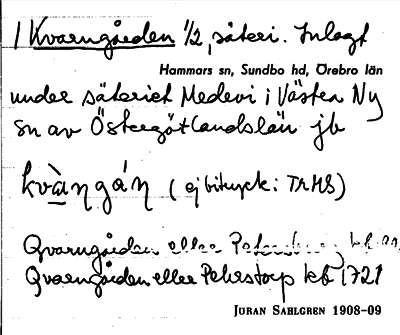 1 Kvarngården 1/2, säteri. Inlagt
Hammars sn, Sundbo hd, Örebro län
under säteriet Medevi i Västra Ny
sn av Östergötlandslän jb
kvàrngán (ej bitryck: TRHS)
Qvarngården eller Petersburg kb
Qvarngården eller Pehrstorp kb 1721
JÖRAN SAHLGREN 1908-09